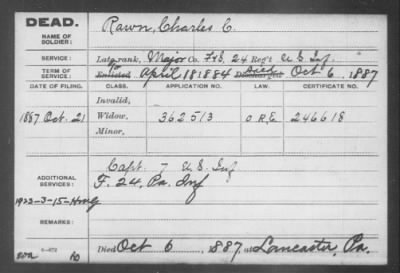 DEAD.
NAME OF SOLDIER:
Rawn, Charles C.
SERVICE:
Late rank, Major Co. F&S, 24 Reg't U.S. Inf
TERM OF SERVICE:
Enlisted April 18 1884 Discharged Died Oct 6, 1887
DATE OF FILING. CLASS. APPLICATION NO. LAW. CERTIFICATE NO.
Invalid,
1887 Oct. 21 Widow, 362513 O R E 246618
Minor,
ADDITIONAL SERVICES:
Capt. 7 U.S. Inf
F. 24, Pa. Inf
REMARKS:
6-672
Died Oct 6, 1887, at Lancaster, Pa.